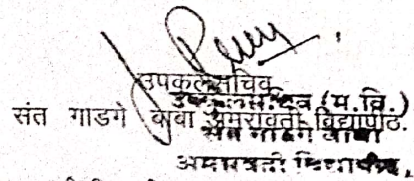 उपकुलसचिव
उपकुलसचिव (म.वि.)
संत गाडगे बाबा अमरावती विद्यापीठ.
संत गाडगे बाबा
अमरावती विद्यापीठ,